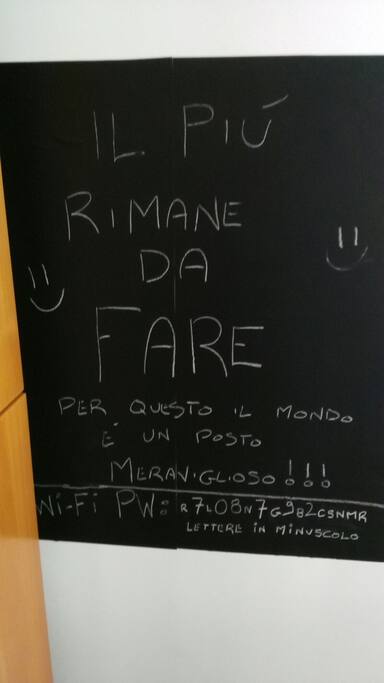 IL PIÚ
RIMANE
DA
FARE
PER QUESTO IL MONDO
E' UN POSTO
MERAVIGLIOSO!!!
Wi-Fi PW: R7LO8N7G9B2CSNMR
LETTERE IN MINUSCOLO